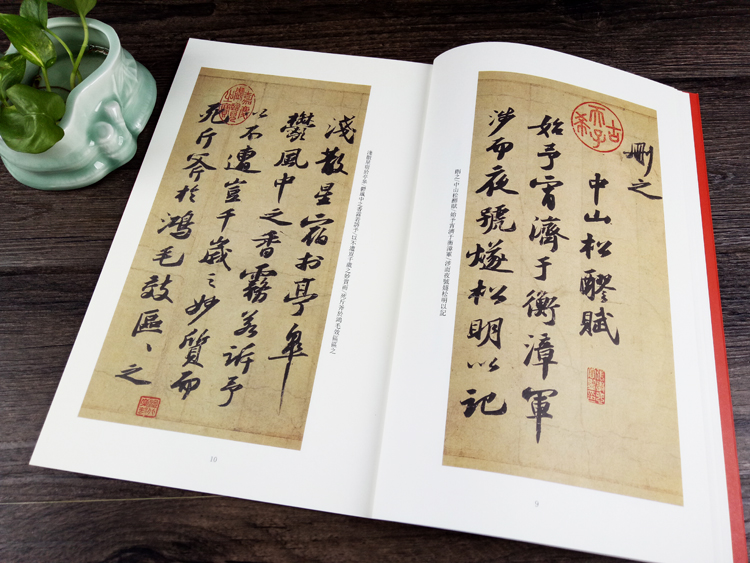 刪之
中山松醪賦
始予宵濟于衡漳軍
涉而夜號燧松明以記
古希天子
刪之 中山松醪賦 始予宵濟于衡漳軍 涉而夜號燧松明以記
9
淺散星宿於亭皋
鬱風中之香霧若訴予
以不遭豈千歲之妙質而
死斤斧於鴻毛效區區之
淺散星宿於亭皋 鬱風中之香霧若訴予 以不遭豈千歲之妙質而 死斤斧於鴻毛效區區之
10